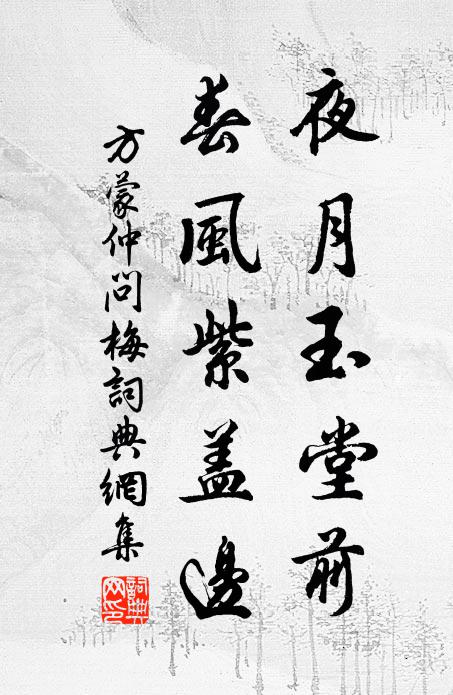 夜月玉堂前
春風紫盖邊
方蒙仲問梅詞典網集
詞典網印